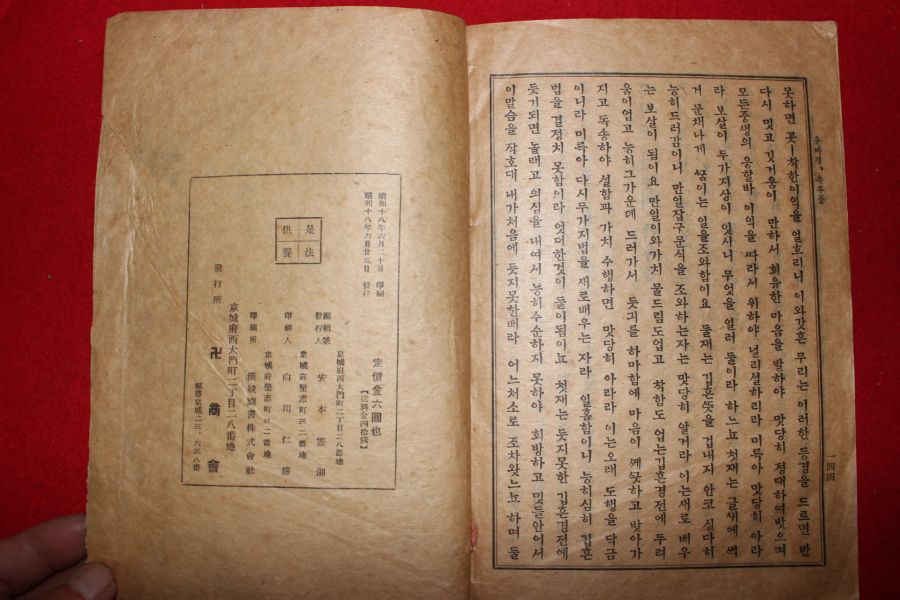 유마경, 촉루품
못하면 곳—착한이익을 일흐리니 이와갓흔 무리는 이러한 등경을 드르면 반
다시 밋고 깃거움이 만하서 희유한 마음을 발하야 맛당히 정대하여밧으며
모든중생의 응할바 이익을 따라서 위하야 널리설하리라 미륵아 맛당히 아라
라 보살이 두가지상이 잇시니 무엇을 일러 둘이라 하느뇨 첫재는 글씨에 썩
거 문채나게 쑴이는 일을조와함이요 둘재는 깁흔뜻을 겁내지 안코 실다히
능히드러감이니 만일잡구문식을 조와하는자는 맛당히 알거라 이는새로 배우
는 보살이 됨이요 만일이와가치 물드림도업고 착함도 업는깁흔경전에 두려
움이업고 능히그가운데 드러가서 듯긔를 하마함에 마음이 깨끗하고 밧아가
지고 독송하야 설함과 가치 수행하면 맛당히 아라라 이는오래 도행을 닥금
이니라 미륵아 다시두가지법을 새로배우는 자라 일홈함아니 능히심히 깁흔
법을 결정치 못함이라 엇더한것이 둘이됨이뇨 첫재는 듯지못한 깁흔경전에
듯기되면 놀래고 의심을 내여서 능히수순하지 못하야 회방하고 밋들안어서
이말슴을 작호대 내가처음에 듯지못한배라 어느처소로 조차왓느뇨 하며 둘
一四四
昭和十八年六月二十日 印刷
昭和十八年六月廿五日 發行
是法
供養
定價金六圓也
京城府西大門町二丁目二八番地
編輯兼
發行人 安本雲湖
京城府堅志町三二番地
印刷人 白川仁
京城府堅志町三二番地
印刷所 漢城圖書株式會社
京城府西大門町二丁目二八番地
發行所 卍商會
振替京城二三、六三八番